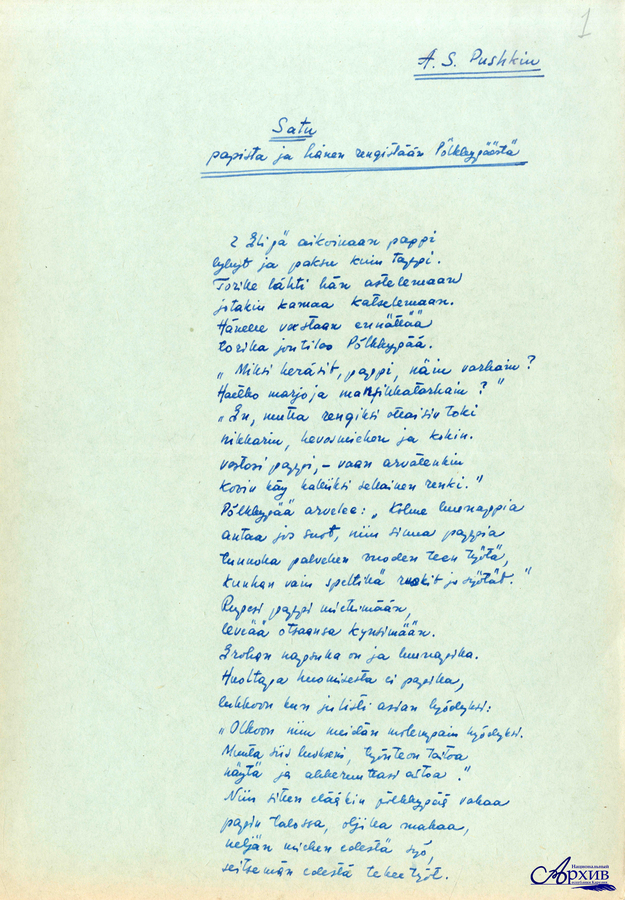 1
A. S. Pushkin
Satu
papista ja hänen rengistään Pölkkypäästä
Eli jä aikoinaan pappi
lyhyt ja paksu kuin tappi.
Torille lähti hän astelemaan
jotakin kamaa katselemaan.
Hänelle vastaan ennättää
torilla jontiloo Pölkkypää.
„Miksi heräsit, pappi, näin varhain?
Haetko marjoja mansikkatarhain?"
„En, mutta rengiksi ottaisin toki
nikkarin, hevosmiehen ja kokin.
vastasi pappi, – vaan arvelenkin
kovin käy kalliiksi sellainen renki."
Pölkkypää arvelee: „Kolme luunappia
antaa jos suot, niin sinua pappia
tunnolla palvellen vuoden teen työtä,
kunhan vain spelttiä ruokit ja syötät."
Rupesi pappi miettimään,
leveää otsaansa kynsimään.
Erohan nappulla on ja luunapilla.
Huoltapa huomisesta ei papilla,
lukkoon kun julisti asian hyödyksi:
„Olkoon niin meidän molempain hyödyksi.
Muuta siis luokseni, työnteon taitoa
näytä ja ahkeruuttasi aitoa."
Niin sitten elääkin pölkkypää vakaa
papin talossa, oljilla makaa,
neljän miehen edestä syö,
seitsemän edestä tekee työt.
Национальный
Архив
Республики Карелия